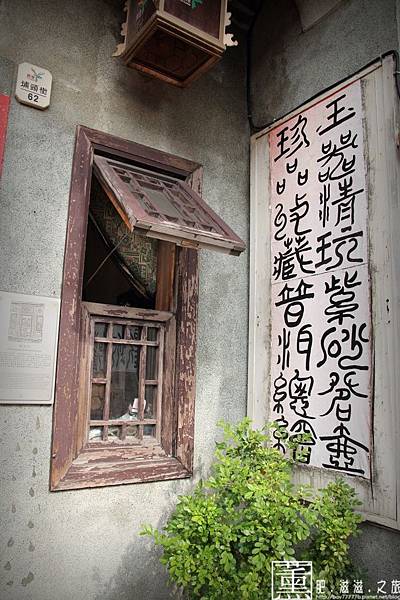 埔頭街
62
玉器精玩紫砂名壺
珍品收藏普洱總
薰
肥.滋滋.之旅
http://boy77777b.pixnet.net/blog